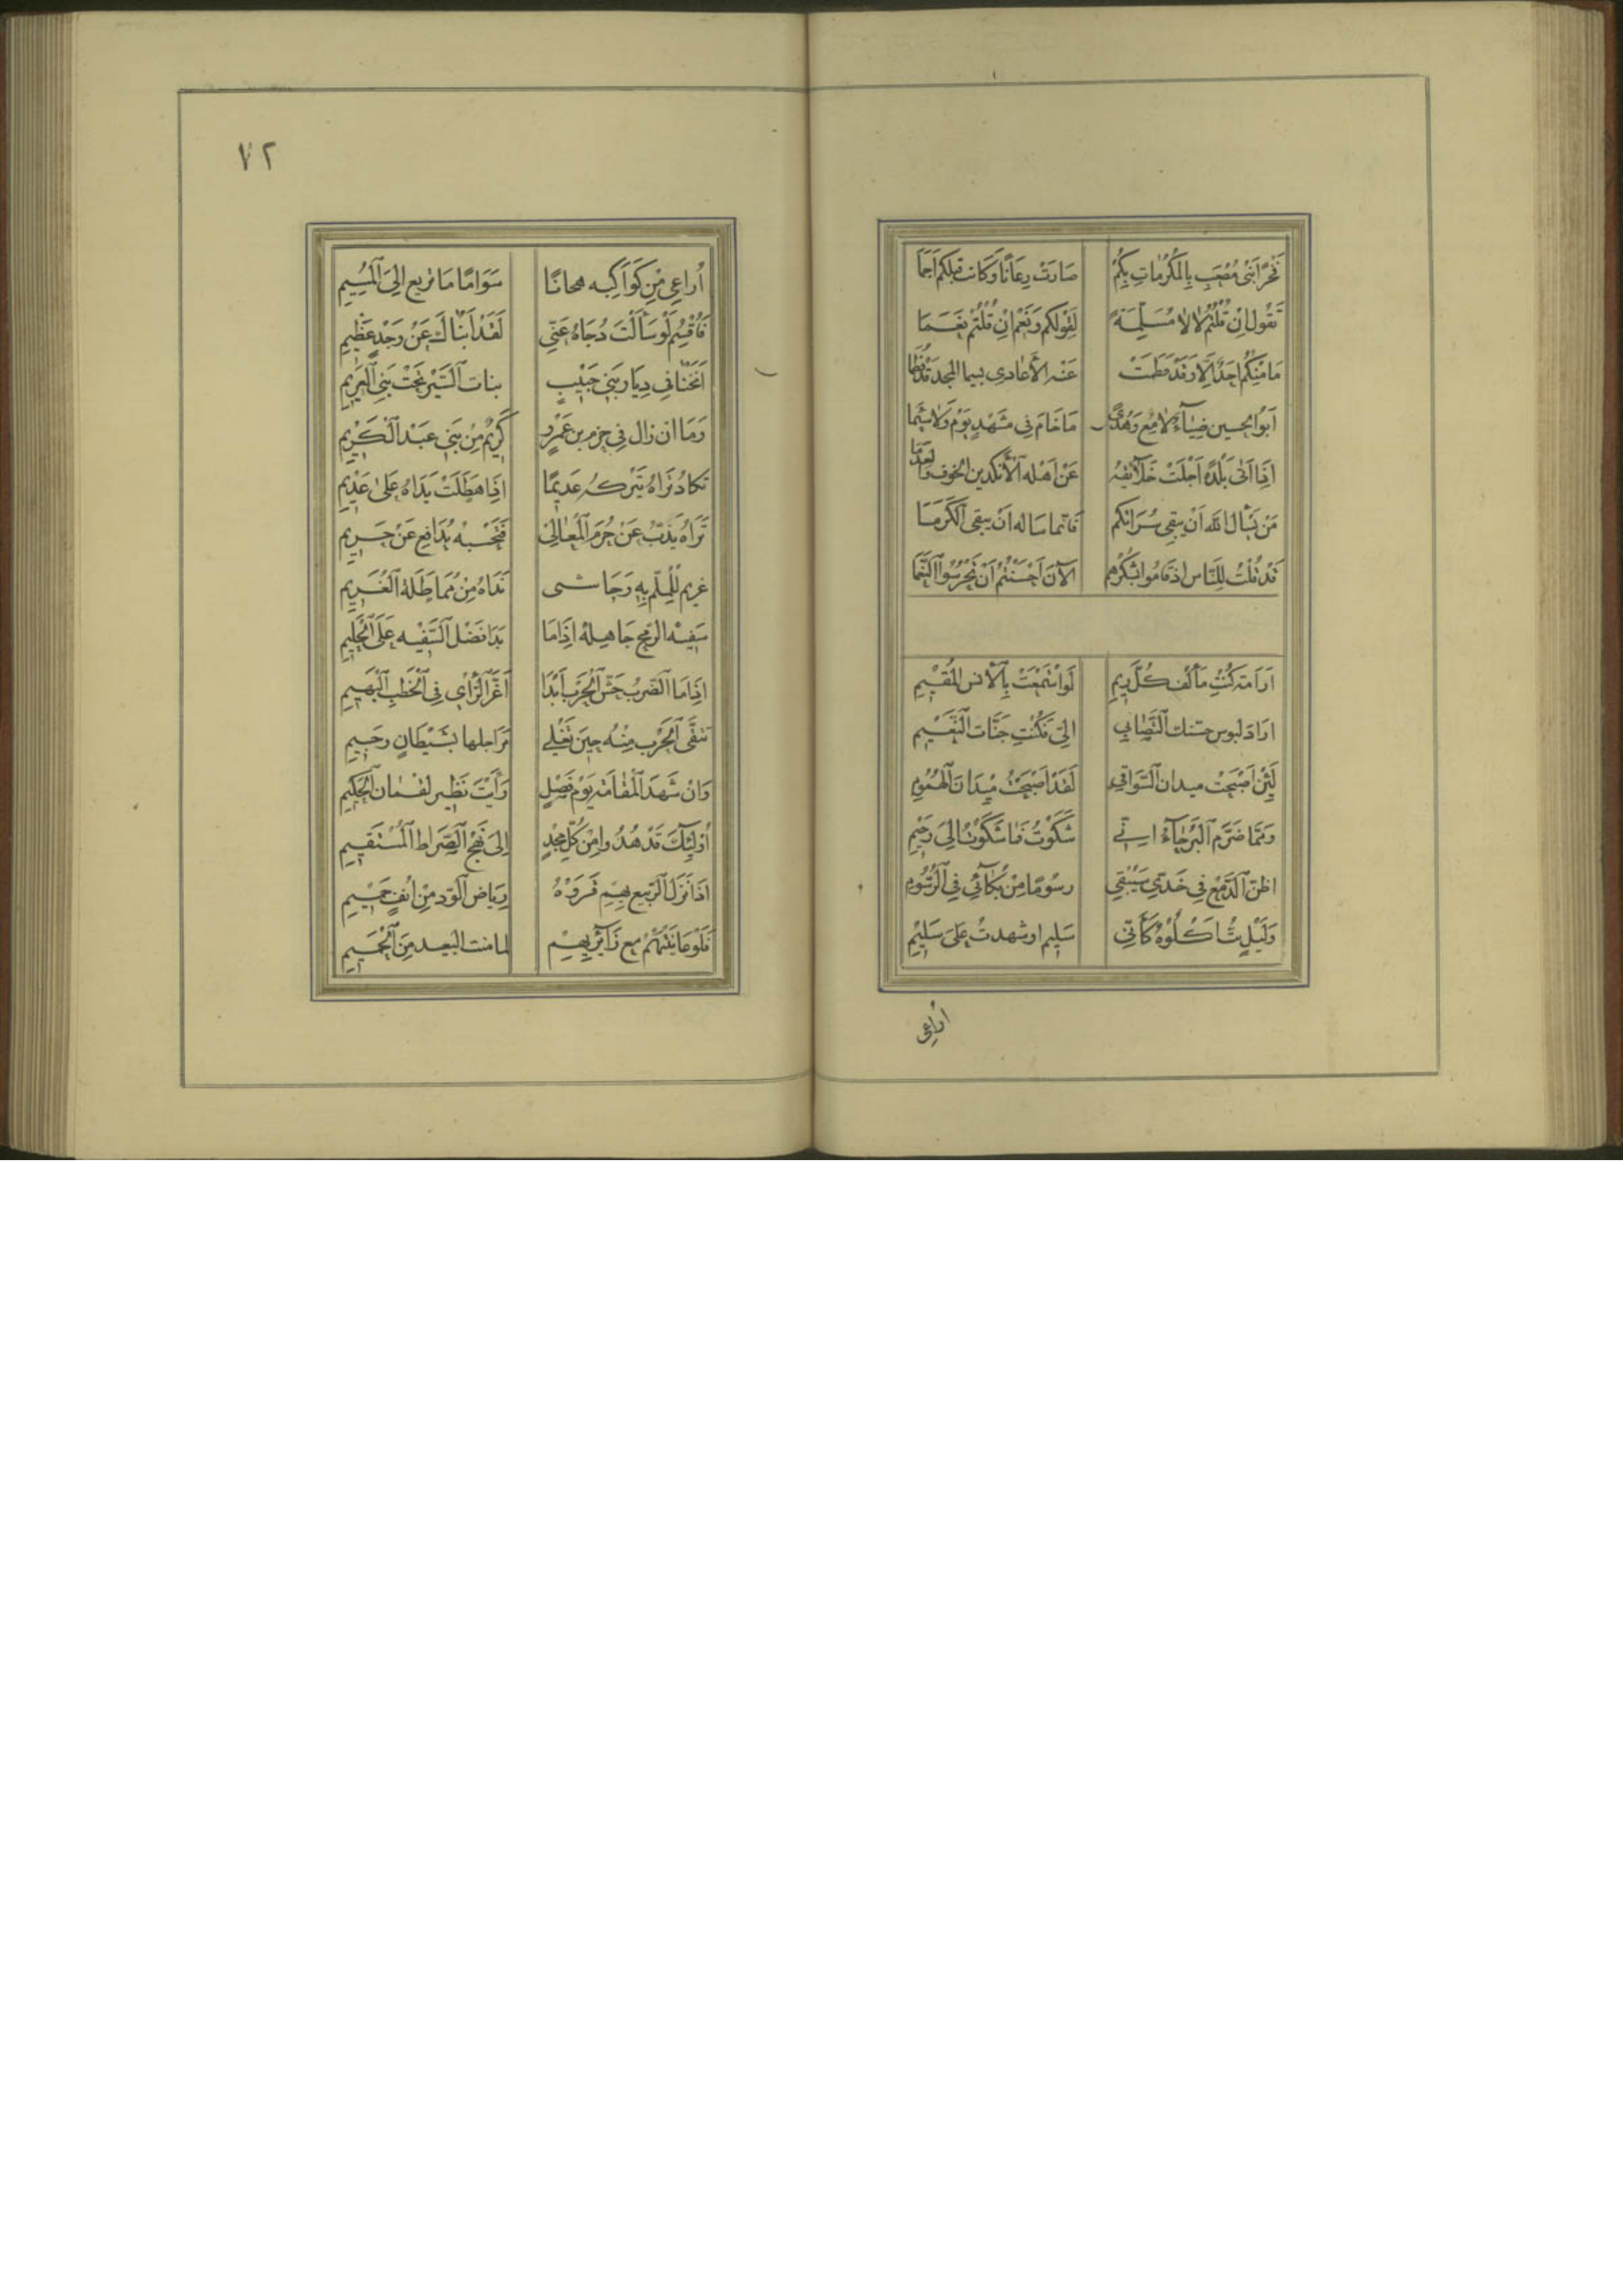 فَخْرًا بَنِى مُصْعَبٍ بِالمَكْرُمَاتِ بِكُمْ صَارَتْ رِعَانًا وَكَانت قبلكم اَكَمَا
تَقُول اِنْ قُلْتُمُ لَا لَا مُسَلِّمَةً لِقَوْلِكُمْ وَنَعَمْ اِنْ قُلْتُمْ نَعَمَا
مَا مِنْكُمُ اَحَدٌ اِلَّا وَقَدْ فُطِمَتْ عَنْهُ الأَعَادِى بسيما المجد قَدْ فُطِمَا
اَبُوا الحسين ضِيَآءٌ لامِعٌ وَهُدًى مَا خَامَ فى مَشْهَدٍ يَوْمًا وَلا سَئِمَا
اِذَا اَتَى بَلْدَةً اَجْلَتْ خَلَآئِقُهُ عَنْ اَهْلِهِ الأَنْكَدين الخوف والعَدَمَا
مَنْ يَسْأَل اللّٰهَ اَنْ يبقى سُرَاتَكم فَانما سَالَهُ اَنْ يبقى الكَرَمَا
قَدْ قُلْتُ لِلنَّاس اذ قَامُوا بشُكْرهم الآنَ اَحْسَنْتُمُ اَنْ تَحْرُسُوا النِّعَمَا
اَرَامَةُ كُنْتِ مَأْلَفَ كُلِّ رِيمِ لَو اسْتَمْتَعْتِ بِالأُنس المُقِيْمِ
ادَارَ البوس حسّنك التَّصَابِي اِلَىَّ فَكُنْتِ جَنَّات النَّعِيْمِ
لَئِنْ اَصْبَحْتِ ميدان السَّوَافِى لَقَدْ اَصْبَحْتُ مَيْدَانَ الهُمُومِ
وَمِمَّا ضَرَّمَ البُرَحَآءَ انِّى شَكَوْتُ فَمَا شَكَوْتُ اِلَى رَحِيْمِ
اظُنّ الدَّمْعَ فِى خَدّى سَيُبْقِى رسُومًا مِنْ بُكَائِى فِى الرُّسُومِ
وَلَيْلٍ بِتُّ اَكْلَؤُهُ كَأَنِّى سَلِيم او سَهدتُ عَلَى سَلِيْمِ
اُراعِى
٧٢
اُرَاعِى مِنْ كَوَاكِبِه هجانًا سَوَامًا مَا تريع اِلَى المُسِيمِ
فَاُقْسِمُ لَوْ سَأَلْتَ دُجَاهُ عَنِّى لَقَدْ اَنْبَاكَ عَنْ وَجْدٍ عَظِيْمِ
اَنَخْنَا فِى دِيَارِ بَنِى حَبِيْبٍ بنات السَّيْرِ تَحْتَ بَنِى العَزِيْمِ
وَمَا ان زال فِى جرم بن عَمْرٍو كَرِيْمٌ مِنْ بَنِى عَبْدِ الكَرِيْمِ
تَكَادُ نَدَاهُ تَتْركُهُ عَدِيْمًا اِذَا هَطَلَتْ يَدَاهُ عَلَى عَدِيْمِ
تَرَاهُ يَذُبُّ عَنْ حُرَمِ المَعَالِى فَتَحْسَبُهُ يُدَافِعُ عَنْ حَرِيْمِ
غريم لِلْمُلِمِّ بِهِ وَحَاشى نَدَاهُ مِنْ مُمَاطَلَةِ الغَرِيْمِ
سَفِيْهُ الرمح جَاهِلُهُ اِذَا مَا بَدَا فَضْلُ السَّفِيْهِ عَلَى الحَلِيْمِ
اِذَا مَا الضَّرْبُ حَشَّ الحَرْبَ اَبْدَا اَغَرَّ الرَّأْىِ فِى الخَطْبِ البَهِيْمِ
تنفَّى الحَرْب مِنْهُ حِيْنَ تَغْلِى مَرَاجلها بشَيْطَانٍ رجِيْمِ
وَاِنْ شَهَدَ المَقَامَةَ يَوْمَ فَصْلٍ رَأَيْتَ نَظِير لُقْمَانَ الحَكِيْمِ
اُولٰئِكَ قَدْ هُدُوا مِنْ كُلِّ مَجْدٍ اِلَى نَهْجِ الصِّرَاطِ المُسْتَقِيْمِ
اذَا نَزَلَ النَّزِيعُ بِهِمْ قَرَوْهُ رِيَاضَ الوُدِّ مِنْ اُنُفٍ جَمِيْمِ
فَلَوْ عَايَنْتَهُمْ مع زَآئِرِيْهِمْ لما مِنْتَ البَعيد مِنَ الحَمِيْمِ